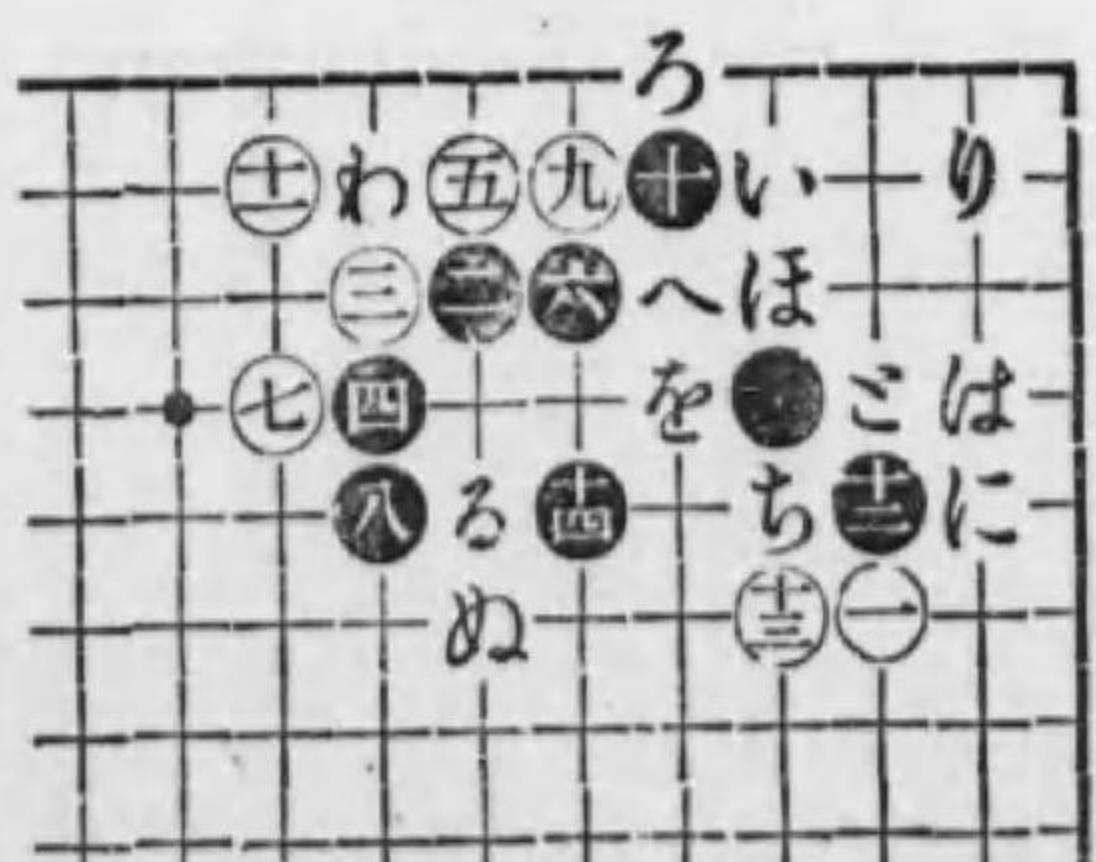 ろ
十一 わ 五 九 十 い り
三 二 六 へ ほ
七 四 を と は
八 る 十四 ち 十二 に
ぬ 十三 一